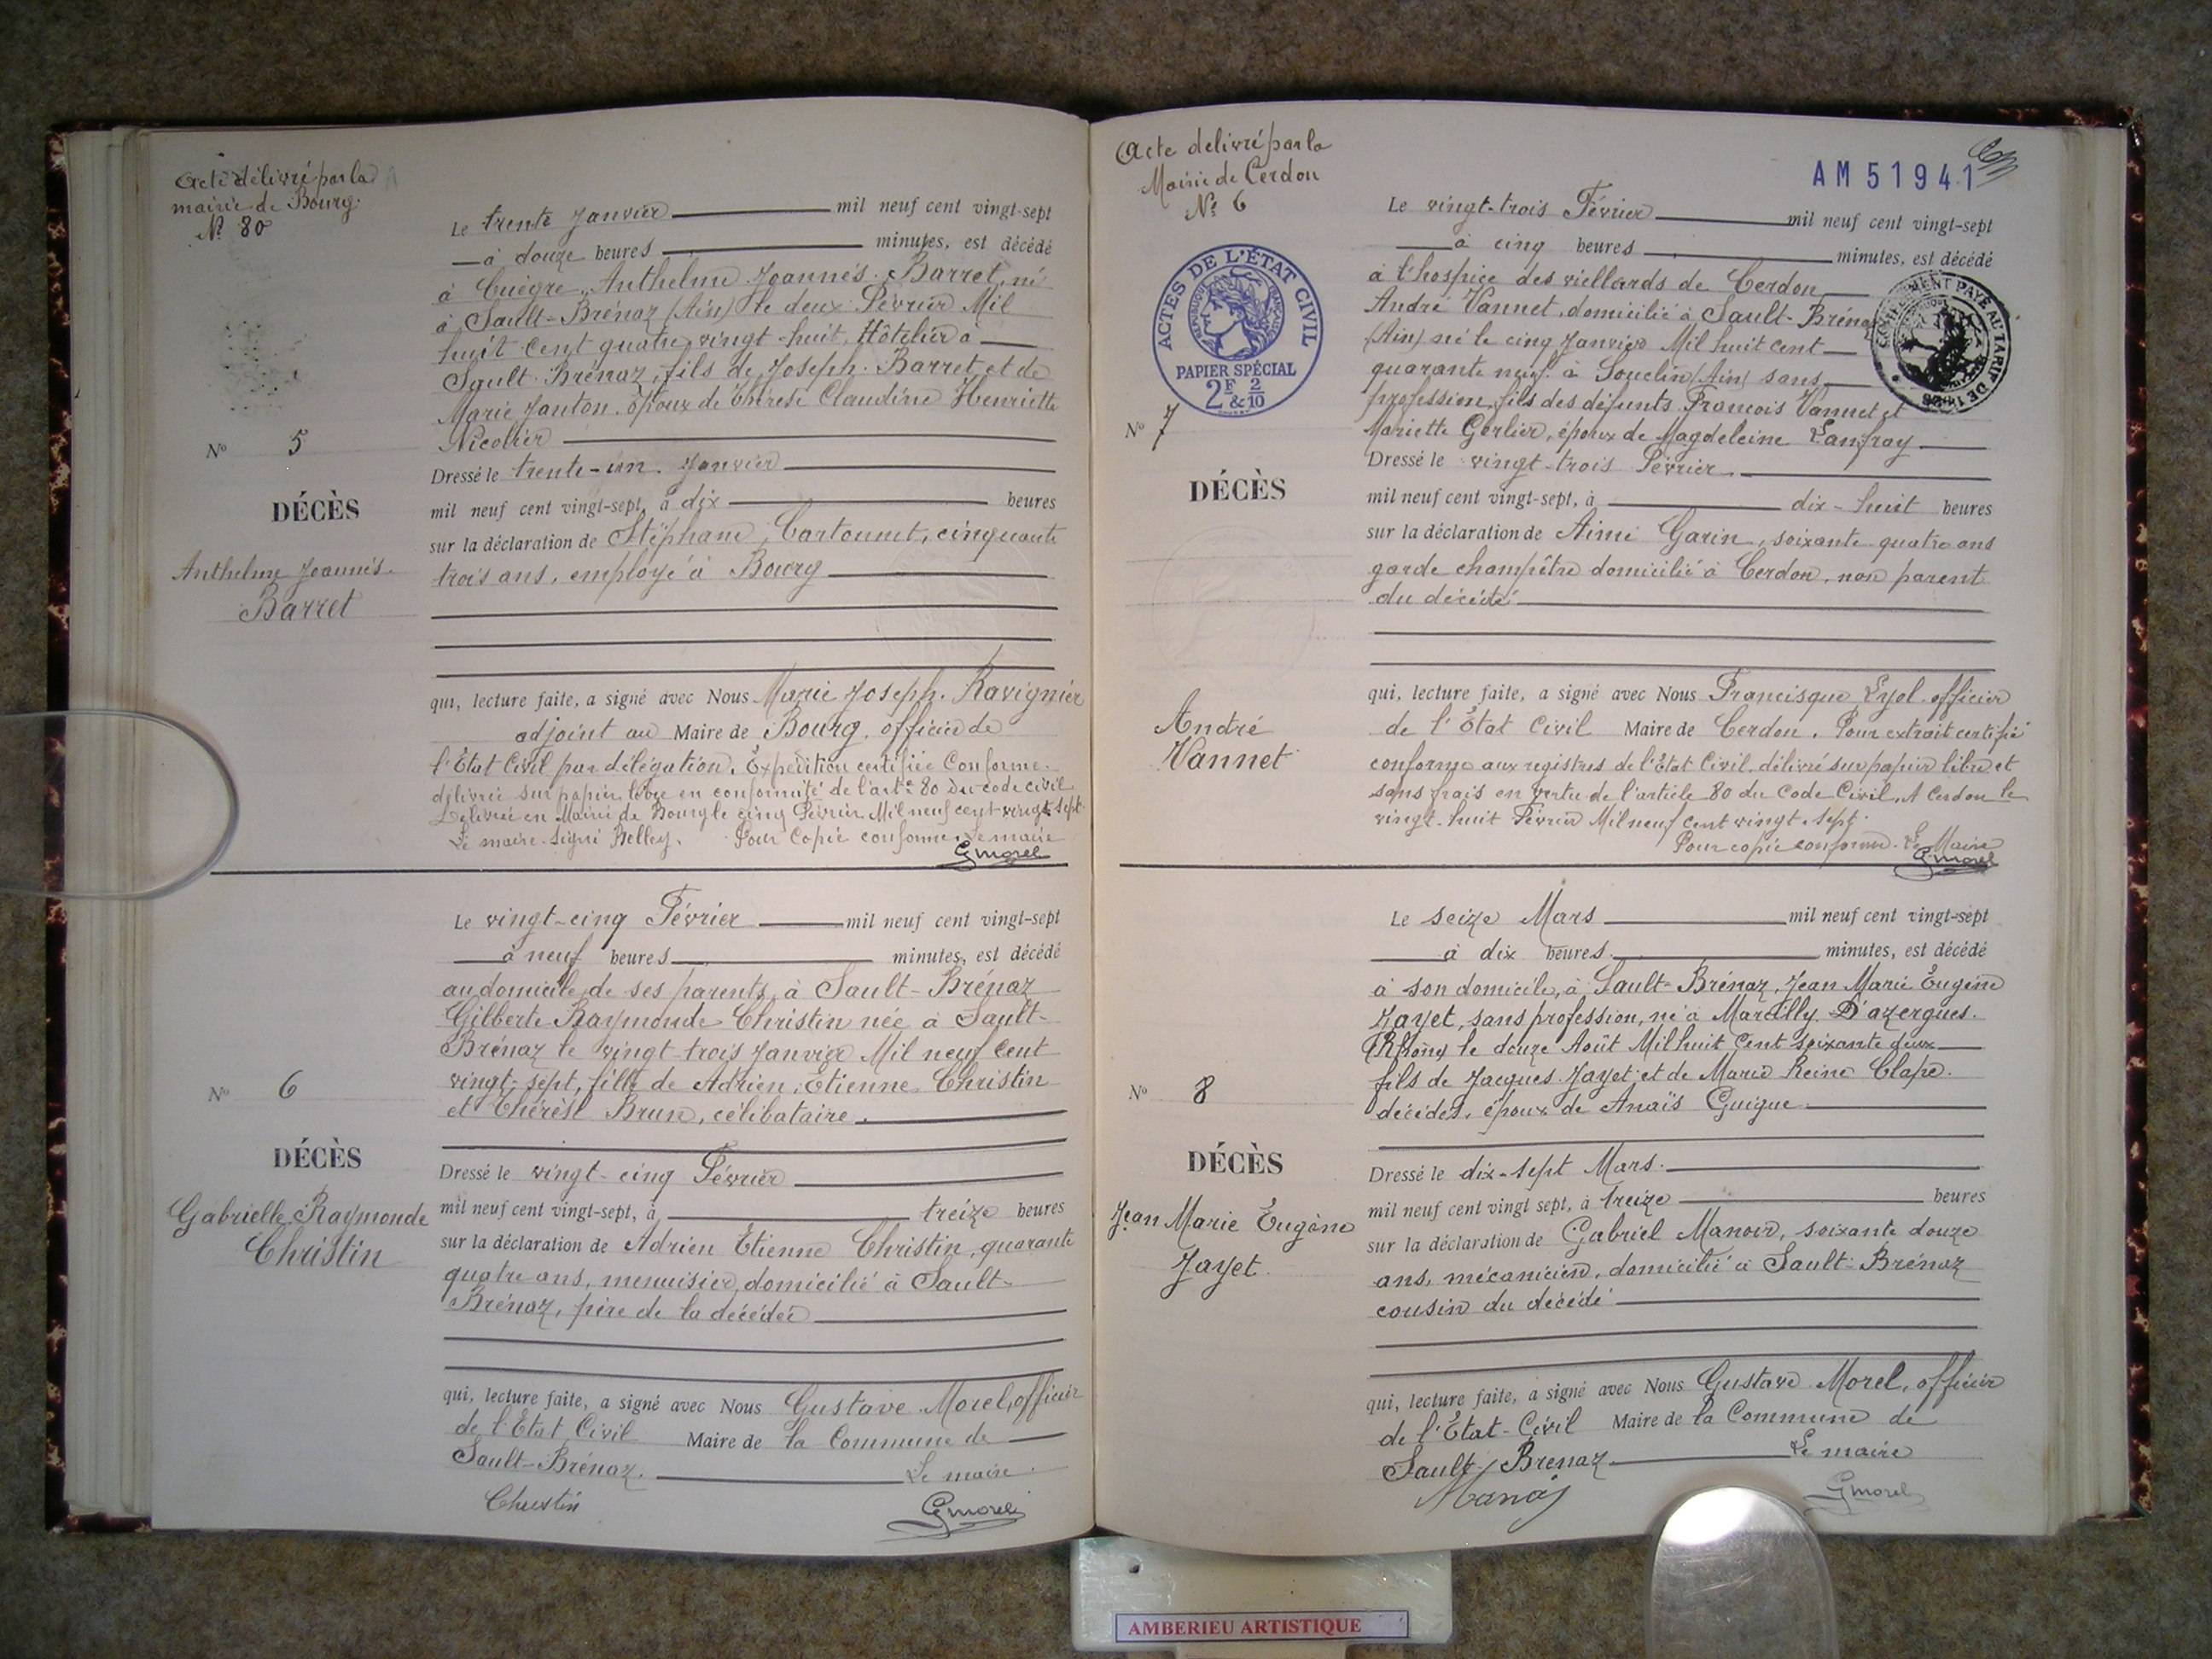 Acte délivré par la
mairie de Bourg.
N° 80
Le trente Janvier mil neuf cent vingt-sept
à douze heures minutes, est décédé
à Cuègre, Anthelme Joannès Barret, né
à Sault-Brénaz (Ain) le deux Février Mil
huit cent quatre vingt-huit, Hôtelier à
Sault-Brénaz, fils de Joseph Barret et de
Marie Janton, époux de Thérèse Claudine Henriette
Nicollier
N° 5
Dressé le trente-un Janvier
mil neuf cent vingt-sept, à dix heures
DÉCÈS
sur la déclaration de Stéphane Cartonnet, cinquante
trois ans, employé à Bourg
Anthelme Joannès
Barret
qui, lecture faite, a signé avec Nous Marie Joseph Ravignier
adjoint au Maire de Bourg, officier de
l'Etat Civil par délégation. Expédition certifiée Conforme
délivrée sur papier libre en conformité de l'art e 80 du code civil
Délivrée en Mairie de Bourg le cinq Février Mil neuf cent vingt sept
Le maire signé Belley. Pour Copie conforme Le maire
G morel
Le vingt-cinq Février mil neuf cent vingt-sept
à neuf heures minutes, est décédé
au domicile de ses parents, à Sault-Brénaz
Gilberte Raymonde Christin née à Sault-
Brénaz le vingt-trois Janvier Mil neuf cent
vingt-sept, fille de Adrien Etienne Christin
et Thérèse Brun, célibataire.
N° 6
DÉCÈS
Dressé le vingt-cinq Février
mil neuf cent vingt-sept, à treize heures
Gabrielle Raymonde
Christin
sur la déclaration de Adrien Etienne Christin, quarante
quatre ans, menuisier, domicilié à Sault-
Brénaz, père de la décédée
qui, lecture faite, a signé avec Nous Gustave Morel, officier
de l'Etat Civil Maire de la Commune de
Sault-Brénaz. Le maire
Christin G morel
Acte délivré par la
Mairie de Cerdon
N° 6
AM 51941
ACTES DE L'ÉTAT CIVIL
RÉPUBLIQUE FRANÇAISE
PAPIER SPÉCIAL
2F & 2/10
Le vingt-trois Février mil neuf cent vingt-sept
à cinq heures minutes, est décédé
à l'hospice des viellards de Cerdon
André Vannet, domicilié à Sault-Brénaz
(Ain) né le cinq Janvier Mil huit cent
quarante neuf à Souclin (Ain) sans
profession, fils des défunts François Vannet et
Mariette Gerlier, époux de Magdeleine Lanfray
N° 7
Dressé le vingt-trois Février
DÉCÈS
mil neuf cent vingt-sept, à dix-huit heures
sur la déclaration de Aimé Garin, soixante quatre ans
garde champêtre domicilié à Cerdon, non parent
du décédé
André
Vannet
qui, lecture faite, a signé avec Nous Francisque Eyol officier
de l'Etat Civil Maire de Cerdon. Pour extrait certifié
conforme aux registres de l'Etat Civil, délivré sur papier libre et
sans frais en vertu de l'article 80 du Code Civil. A Cerdon le
vingt-huit Février Mil neuf cent vingt sept.
Pour copie conforme. Le Maire
G morel
Le seize Mars mil neuf cent vingt-sept
à dix heures minutes, est décédé
à son domicile, à Sault-Brénaz, Jean Marie Eugène
Jayet, sans profession, né à Marcilly D'azergues.
(Rhône) le douze Août Mil huit cent soixante deux
fils de Jacques Jayet et de Marie Reine Clape.
décédés, époux de Anaïs Guigue
N° 8
DÉCÈS
Dressé le dix-sept Mars.
mil neuf cent vingt sept, à treize heures
Jean Marie Eugène
Jayet.
sur la déclaration de Gabriel Manoir, soixante douze
ans, mécanicien, domicilié à Sault-Brénaz
cousin du décédé
qui, lecture faite, a signé avec Nous Gustave Morel, officier
de l'Etat-Civil Maire de la Commune de
Sault-Brenaz Le maire
G morel
AMBERIEU ARTISTIQUE